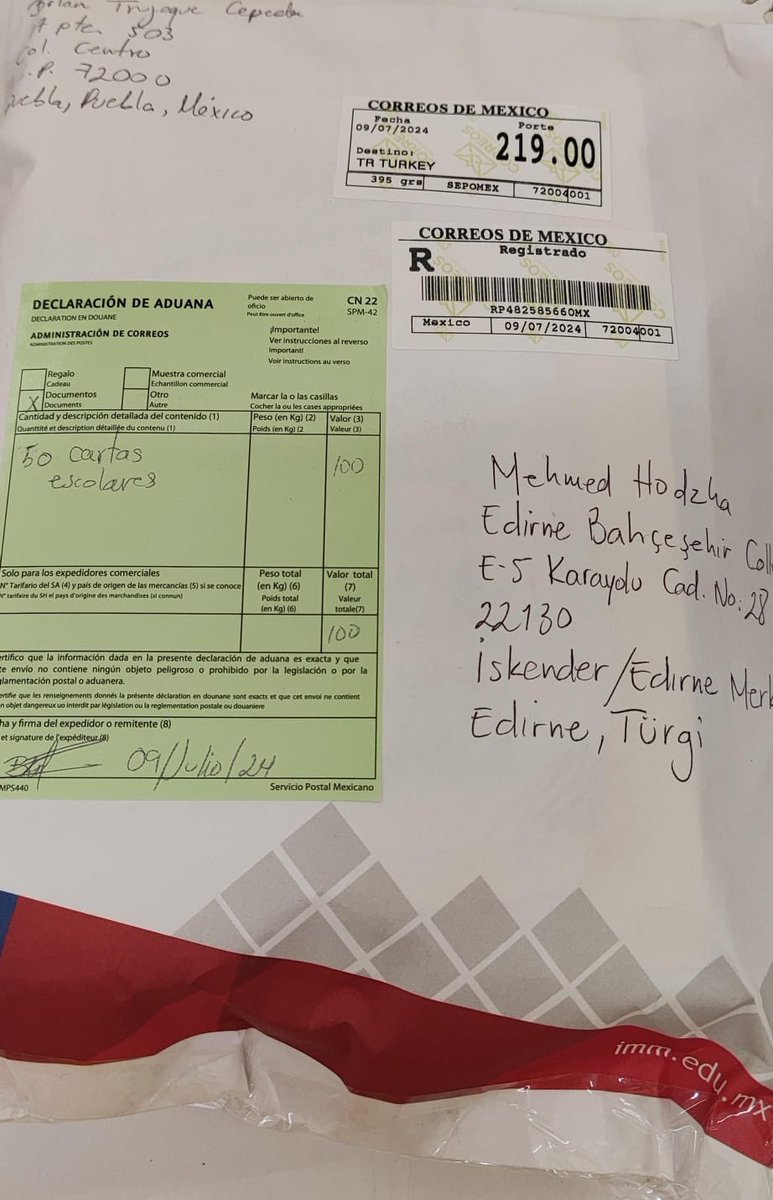 Trujaque Cepeda
7 pte. 503
Col. Centro
C.P. 72000
Puebla, Puebla, México
CORREOS DE MEXICO
Fecha
Porte
09/07/2024
219.00
Destino:
TR TURKEY
395 grs SEPOMEX 72004001
CORREOS DE MEXICO
R Registrado
RP482585660MX
Mexico 09/07/2024 72004001
DECLARACIÓN DE ADUANA
DECLARATION EN DOUANE
ADMINISTRACIÓN DE CORREOS
ADMINISTRATION DES POSTES
Puede ser abierto de
oficio
Peut être ouvert d'office
CN 22
SPM-42
¡Importante!
Ver instrucciones al reverso
Important!
Voir instructions au verso
Regalo
Cadeau
Muestra comercial
Echantillon commercial
X Documentos
Documents
Otro
Autre
Marcar la o las casillas
Cocher la ou les cases appropriées
Cantidad y descripción detallada del contenido (1)
Quantité et description détaillée du contenu (1)
Peso (en Kg) (2)
Poids (en Kg) (2
Valor (3)
Valeur (3)
50 cartas
escolares
100
Solo para los expedidores comerciales
N° Tarifario del SA (4) y país de origen de las mercancías (5) si se conoce
N° tarifaire du SH el pays d'origine des marchandises (si connun)
Peso total
(en Kg) (6)
Poids total
(en Kg) (6)
Valor total
(7)
Valeur
totale(7)
100
ertifico que la información dada en la presente declaración de aduana es exacta y que
te envío no contiene ningún objeto peligroso o prohibido por la legislación o por la
glamentación postal o aduanera.
ertifie que les renseignements donnés la présente déclaration en dounane sont exacts et que cet envoi ne contient
n objet dangereux uo interdit par législation ou la reglementation postale ou douaniere
ha y firma del expedidor o remitente (8)
et signature de l'expéditeur (8)
09/Julio/24
MPS440
Servicio Postal Mexicano
Mehmed Hodzha
Edirne Bahçeşehir Coll
E-5 Karayolu Cad. No: 28
22130
İskender/Edirne Merk
Edirne, Türgi
imm.edu.mx